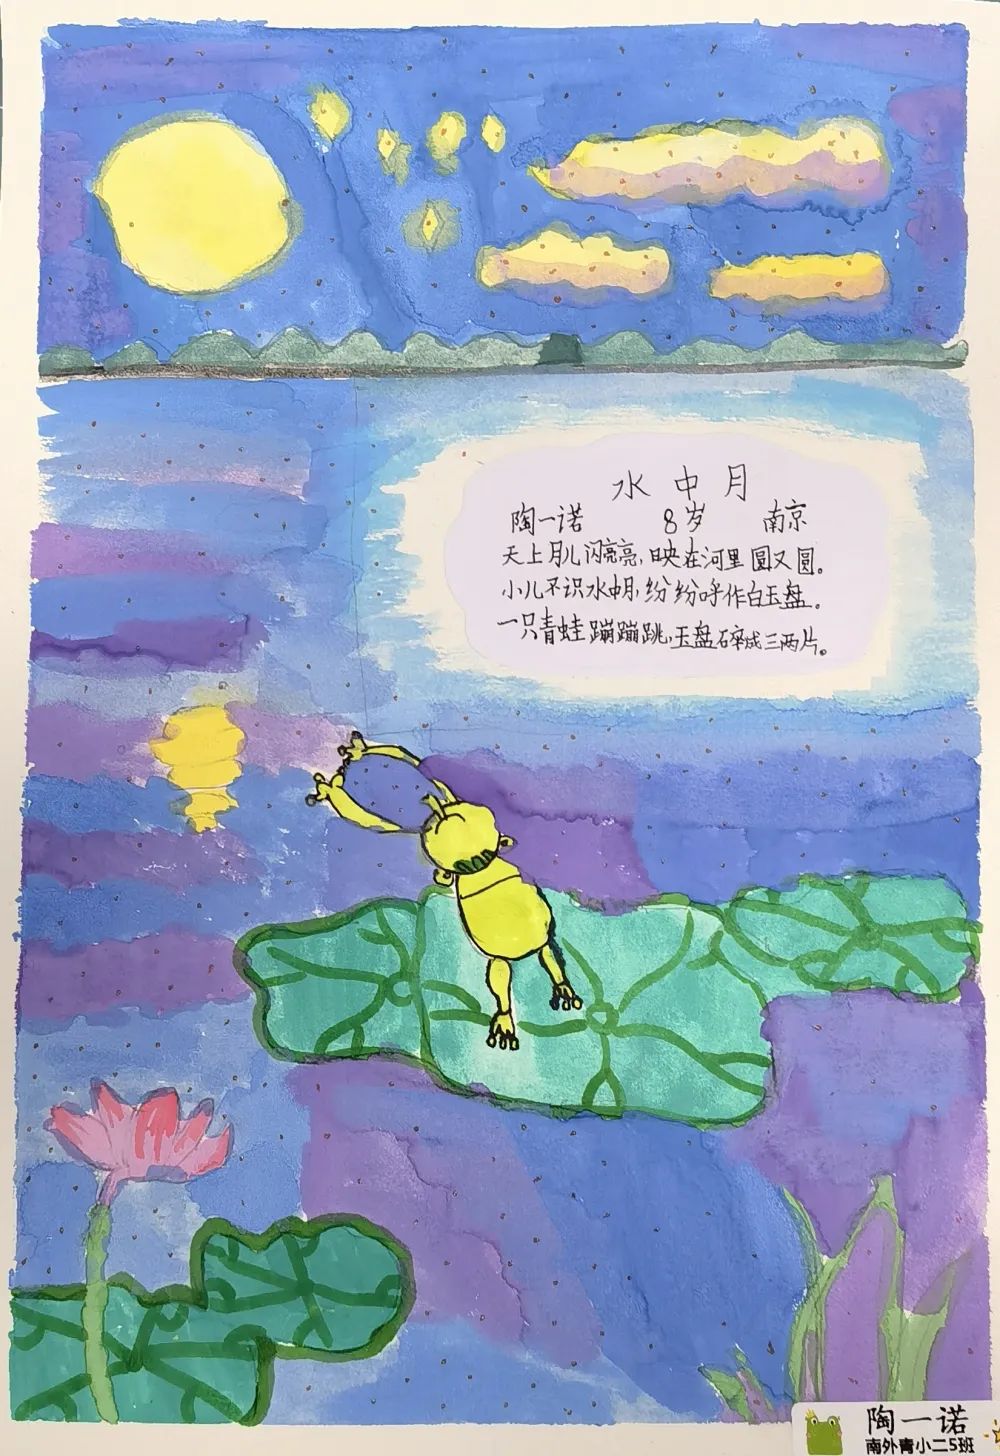 水中月
陶一诺 8岁 南京
天上月儿闪亮亮，映在河里圆又圆。
小儿不识水中月，纷纷呼作白玉盘。
一只青蛙蹦蹦跳，玉盘碎成三两片。
陶一诺
南外青小二5班